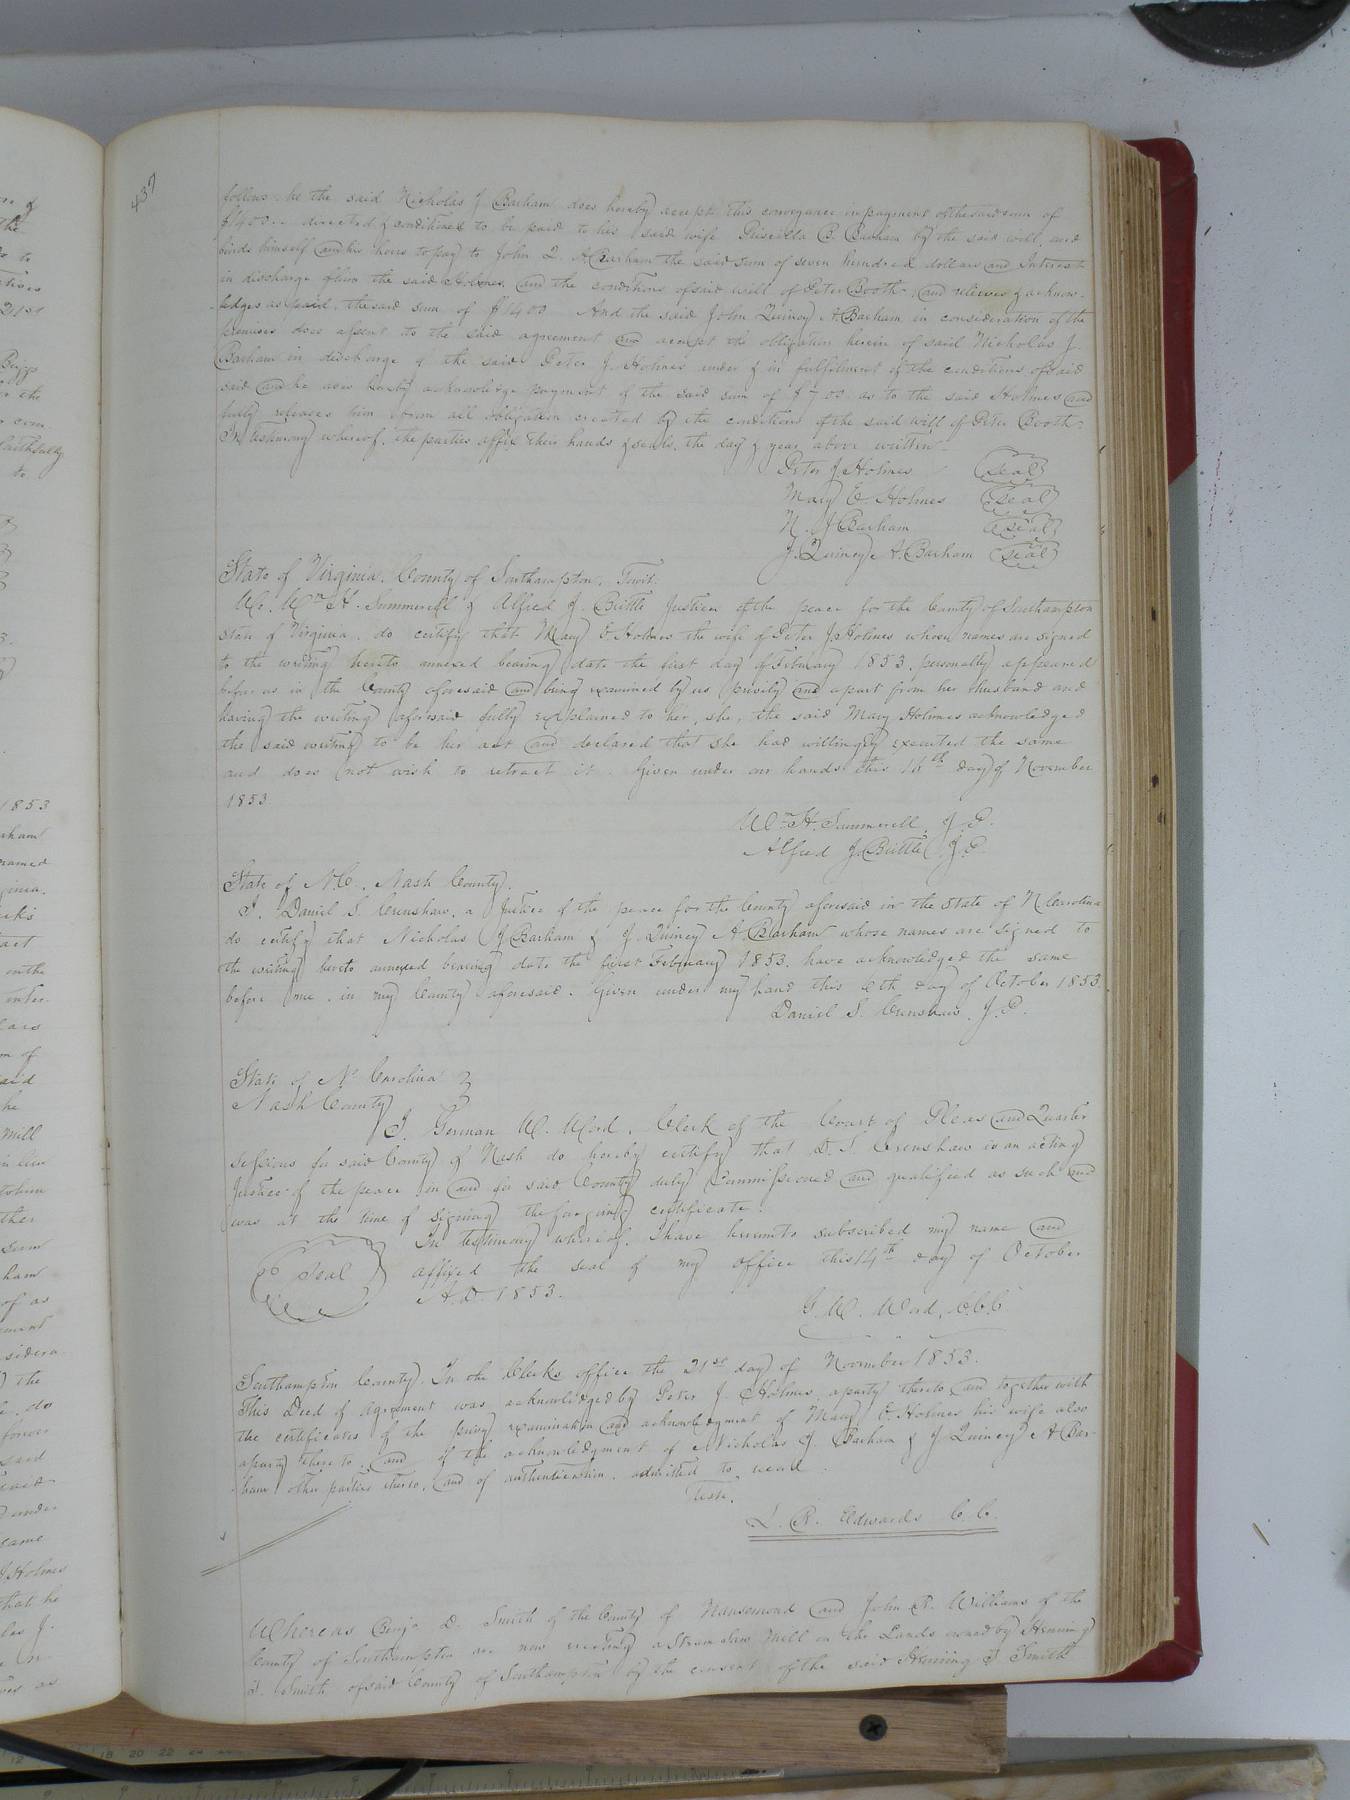 437
follows he the said Nicholas J Barham does hereby accept this conveyance in payment of the said sum of
$1400.. directed & conditioned to be paid to his said wife Priscilla B. Barham by the said will, and
binds himself and his heirs to pay to John Q. A Barham the said sum of seven hundred dollars and Interest
in discharge of him the said Holmes, and the conditions of said will of Peter Booth, and relieves & acknow-
-ledges as paid, the said sum of $1400 And the said John Quincy A. Barham in consideration of the
premises does assent to the said agreement and accept the obligation herein of said Nicholas J.
Barham in discharge of the said Peter J. Holmes under & in fulfilment of the conditions of said
said and he does hereby acknowledge payment of the said sum of $700 as to the said Holmes and
fully releases him from all obligation created by the conditions of the said will of Peter Booth.
In testimony whereof, the parties affix their hands & seals, the day & year above written.
Peter J. Holmes seal
Mary E Holmes seal
N. J Barham seal
J. Quincy A. Barham seal
State of Virginia. County of Southampton, Towit:
We, Wm H. Summerell & Alfred J. Brittle Justices of the peace for the County of Southampton
State of Virginia, do certify that Mary E Holmes the wife of Peter J. Holmes whose names are signed
to the writing hereto annexed bearing date the first day of February 1853, personally appeared
before us in the County aforesaid and being examined by us privily and apart from her husband and
having the writing aforesaid fully explained to her, she, the said Mary Holmes acknowledged
the said writing to be her act and declared that she had willingly executed the same
and does not wish to retract it. Given under our hands this 14th day of November
1853
Wm H. Summerell, J. P.
Alfred J. Brittle J. P.
State of N.C., Nash County.
I, Daniel S. Crenshaw, a Justice of the peace for the County aforesaid in the State of N Carolina
do certify that Nicholas J Barham & J. Quincy A. Barham whose names are signed to
the writing hereto annexed bearing date the first February 1853, have acknowledged the same
before me, in my County aforesaid. Given under my hand this 6th day of October 1853.
Daniel S. Crenshaw, J. P.
State of No Carolina
Nash County
I, German W. Ward, Clerk of the Court of Pleas and Quarter
sessions for said County of Nash do hereby certify that D. S. Crenshaw is an acting
Justice of the peace in and for said County duly Commissioned and qualified as such and
was at the time of signing the foregoing certificate.
In testimony whereof, I have hereunto subscribed my name and
Seal affixed the seal of my office this 14th day of October
A.D. 1853.
G. W. Ward, C.C.C
Southampton County. In the Clerks office the 21st day of November 1853.
This Deed of agreement was acknowledged by Peter J. Holmes, a party thereto and together with
the certificates of the privy examination and acknowledgment of Mary E. Holmes his wife also
a party thereto, and of the acknowledgment of Nicholas J. Barham & J Quincy A Bar-
-ham other parties thereto, and of authentication, admitted to record
Teste,
L. R. Edwards C. C.
Whereas Benja D. Smith of the County of Nansemond and John R. Williams of the
County of Southampton are now erecting a Steam Saw Mill on the Lands owned by Henning
T. Smith of said County of Southampton by the consent of the said Henning T Smith